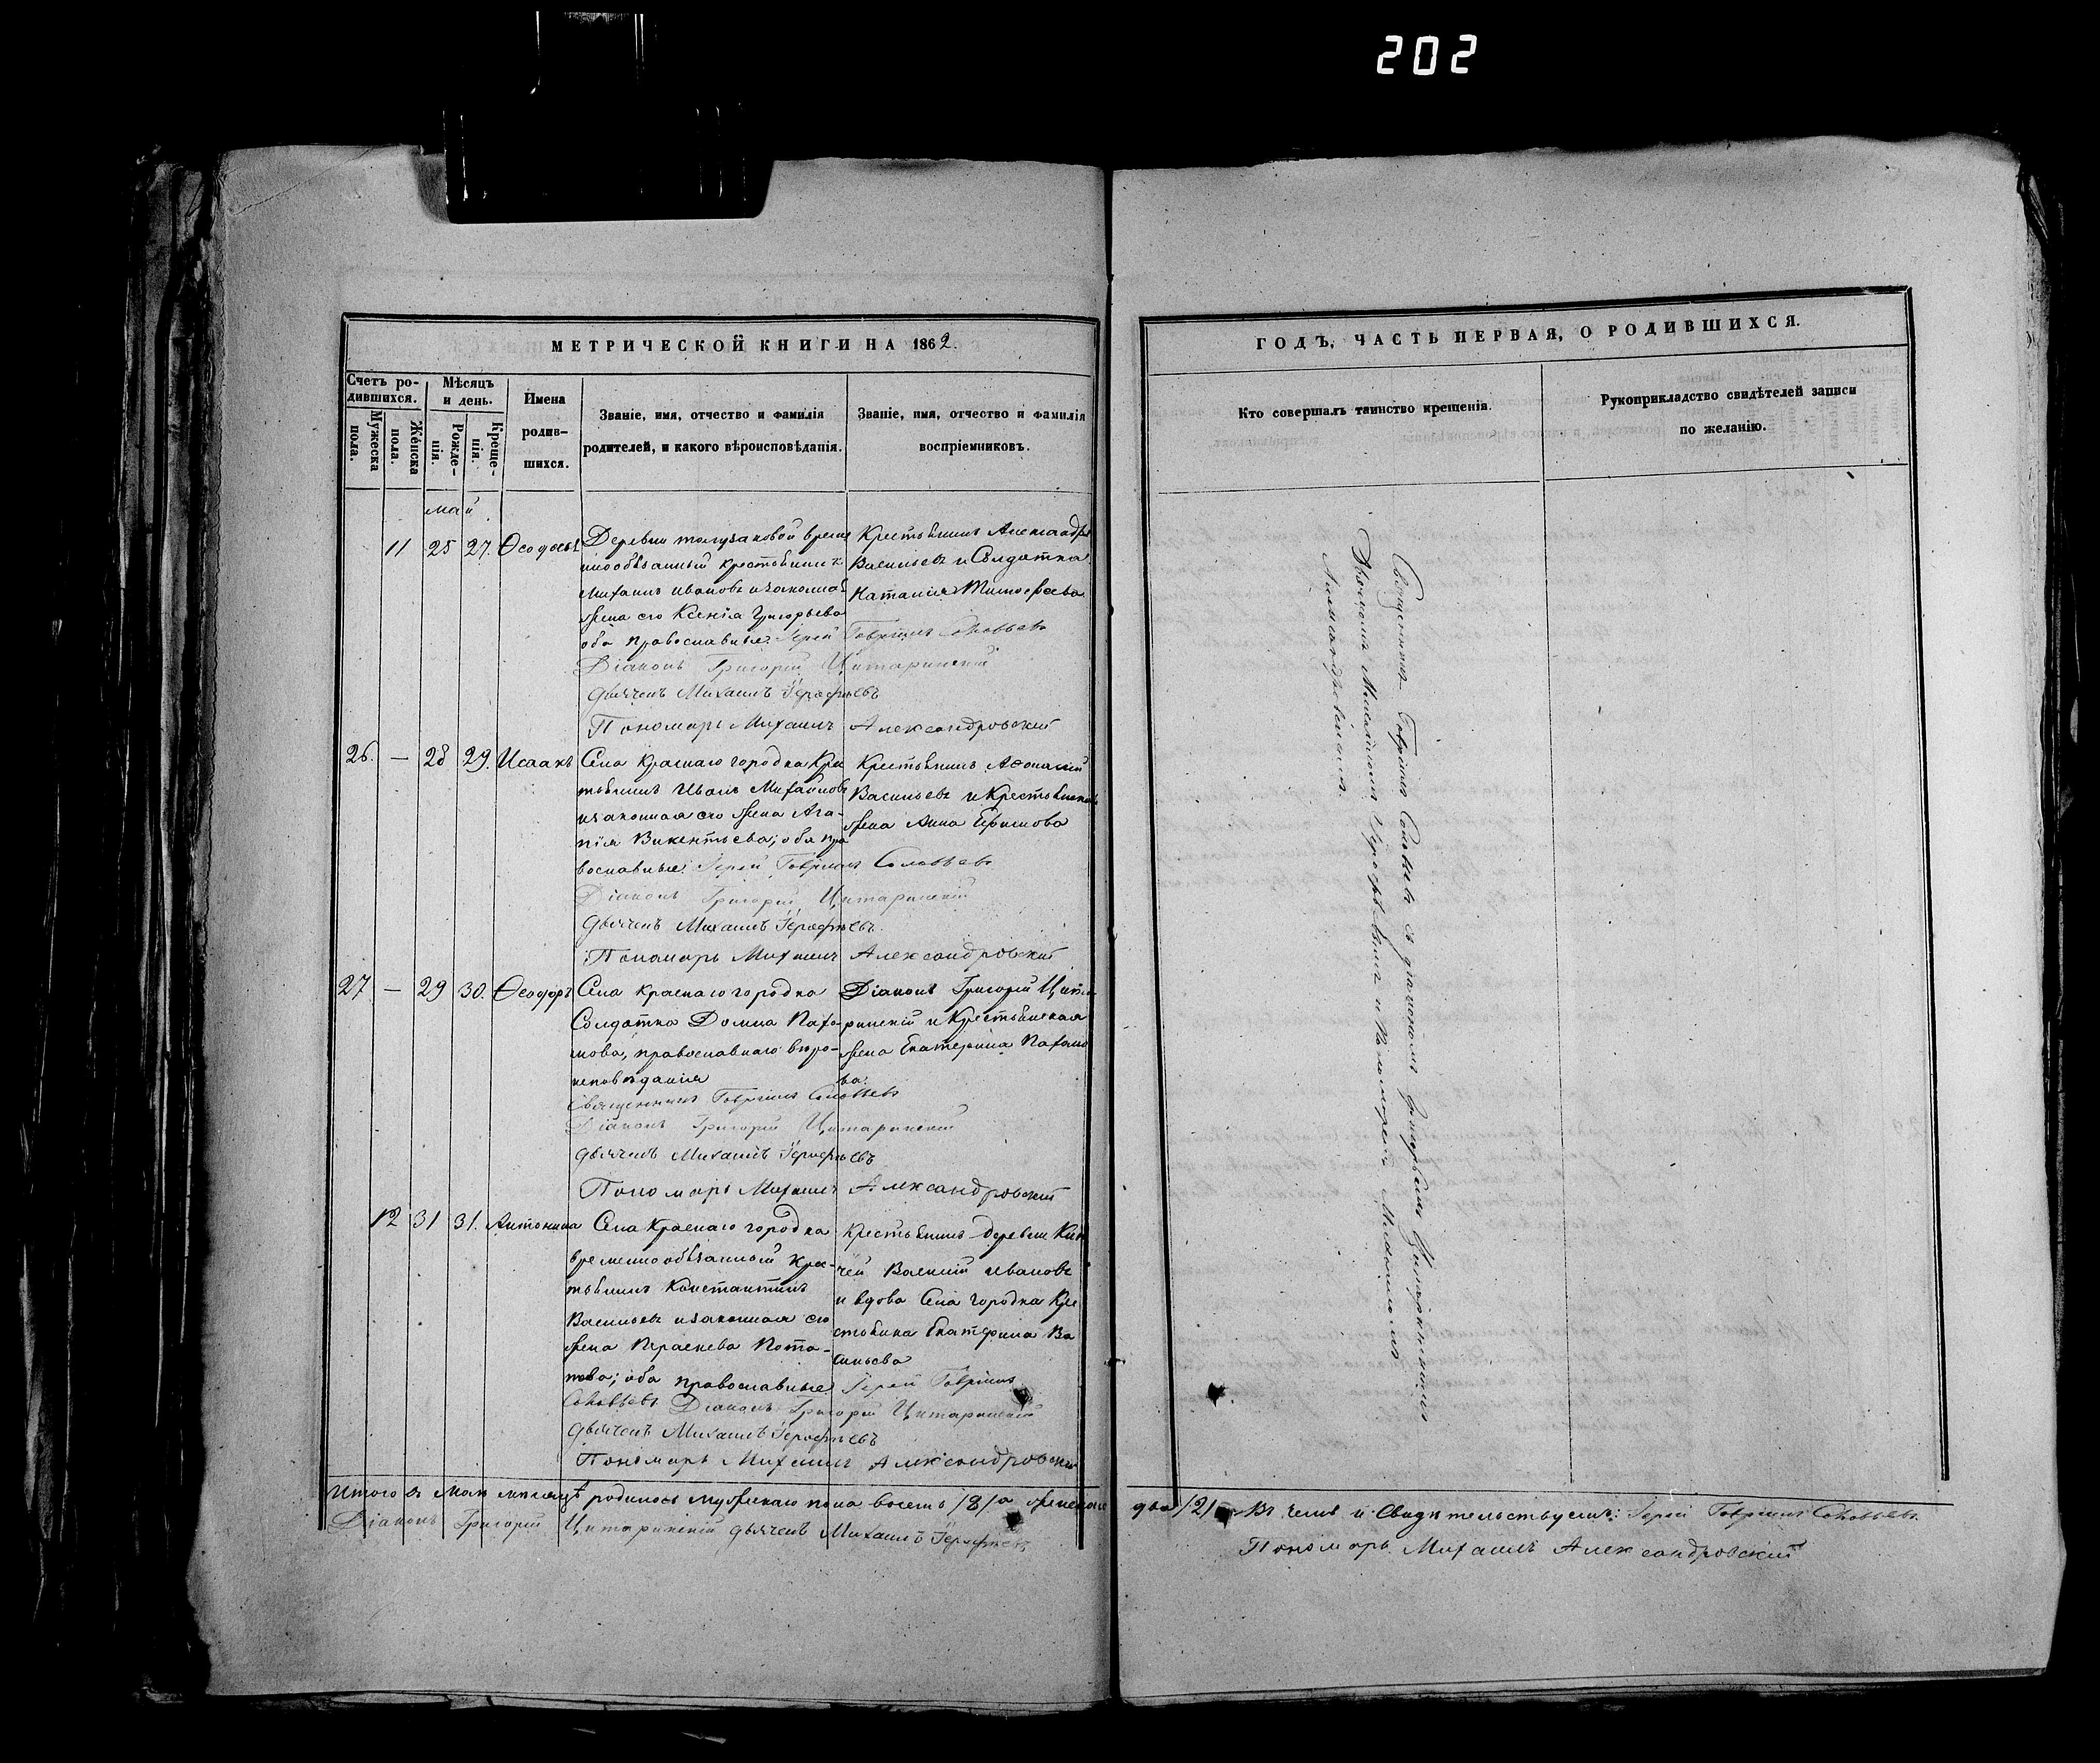 202
МЕТРИЧЕСКОЙ КНИГИ НА 1862.
Счетъ ро-
дившихся.
Мѣсяцъ
и день.
Имена
родив-
шихся.
Званіе, имя, отчество и фамилія
родителей, и какого вѣроисповѣданія.
Званіе, имя, отчество и фамилія
воспріемниковъ.
Мужеска
пола.
Женска
пола.
Рожде-
нія.
Креще-
нія.
май
11 25 27.
Деревни временно
обязанный крестьянинъ
Михаилъ Ивановъ и законная
жена его Ксенія Григорьева
оба православные.
Крестьянинъ Александръ
Васильевъ и Солдатка
Наталія Тимофеева
Іерей Гавріилъ Соловьевъ
Діаконъ Григорій Цитаринскій
Дьячекъ Михаилъ Іерофѣевъ
Пономарь Михаилъ Александровскій
26. — 28 29. Исаакъ
Села Краснаго городка Кре
тьянинъ Иванъ Михайловъ
и законная его жена Ага-
пія Викентьева; оба пра
вославные.
Крестьянинъ Афонасий
Васильевъ и Крестьянска
жена Анна Ефимова
Іерей Гавріилъ Соловьевъ
Діаконъ Григорій Цитаринскій
Дьячекъ Михаилъ Іерофѣевъ.
Пономарь Михаилъ Александровскій
27 — 29 30. Ѳеодоръ
Села Краснаго городка
Солдатка Домна Пахо-
мова, православнаго вѣро-
исповѣданія
Діаконъ Григорій Цита
ринскій и Крестьянская
жена Екатерина Пахомо
ва.
Священникъ Гавріилъ Соловьевъ
Діаконъ Григорій Цитаринскій
Дьячекъ Михаилъ Іерофѣевъ
Пономарь Михаилъ Александровскій
12 31 31. Антонина
Села Краснаго городка
временнообязанный крес-
тьянинъ Константинъ
Васильевъ и законная его
жена Параскева Пота-
пова; оба православные
Крестьянинъ деревни
Василій Ивановъ
и вдова Села городка Кре
стьянка Екатерина Ва
сильева
Іерей Гавріилъ
Соловьевъ Діаконъ Григорій Цитаринскій
Дьячекъ Михаилъ Іерофѣевъ
Пономарь Михаилъ Александровскій
Итого въ Маѣ мѣсяцѣ родилось мужескаго пола восемь /8/ а женскаго
Діаконъ Григорій Цитаринскій Дьячекъ Михаилъ Іерофѣевъ
ГОДЪ, ЧАСТЬ ПЕРВАЯ, О РОДИВШИХСЯ.
Кто совершалъ таинство крещенія.
Рукоприкладство свидѣтелей записи
по желанію.
Священникъ Гавріилъ Соловьевъ съ діакономъ Григорьемъ Цитаринскимъ
Дьячкомъ Михаиломъ Іерофѣевымъ и Пономаремъ Михаиломъ
Александровскимъ.
два /2/ Въ чемъ и Свидѣтельствуемъ: Іерей Гавріилъ Соловьевъ
Пономарь Михаилъ Александровскій